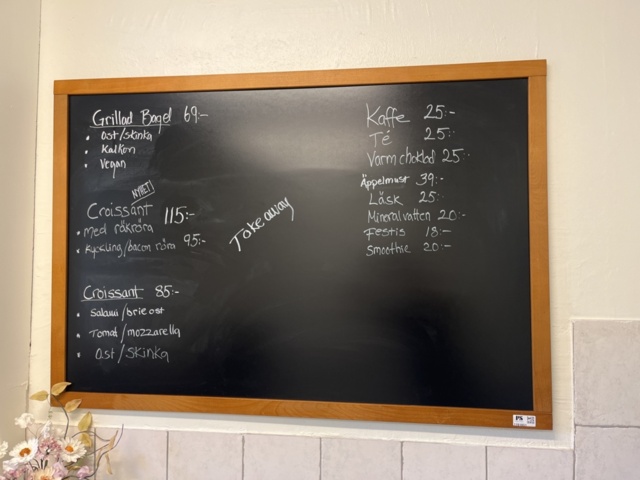 Grillad Bagel 69:-
• Ost/skinka
• Kalkon
• Vegan
NYHET!
Croissant 115:-
• med räkröra
• Kyckling/bacon röra 95:-
Croissant 85:-
• Salami/brieost
• Tomat/mozzarella
• Ost/skinka
Take away
Kaffe 25:-
Té 25:-
Varm choklad 25:-
Äppelmust 39:-
Läsk 25:-
Mineralvatten 20:-
Festis 18:-
Smoothie 20:-
PS